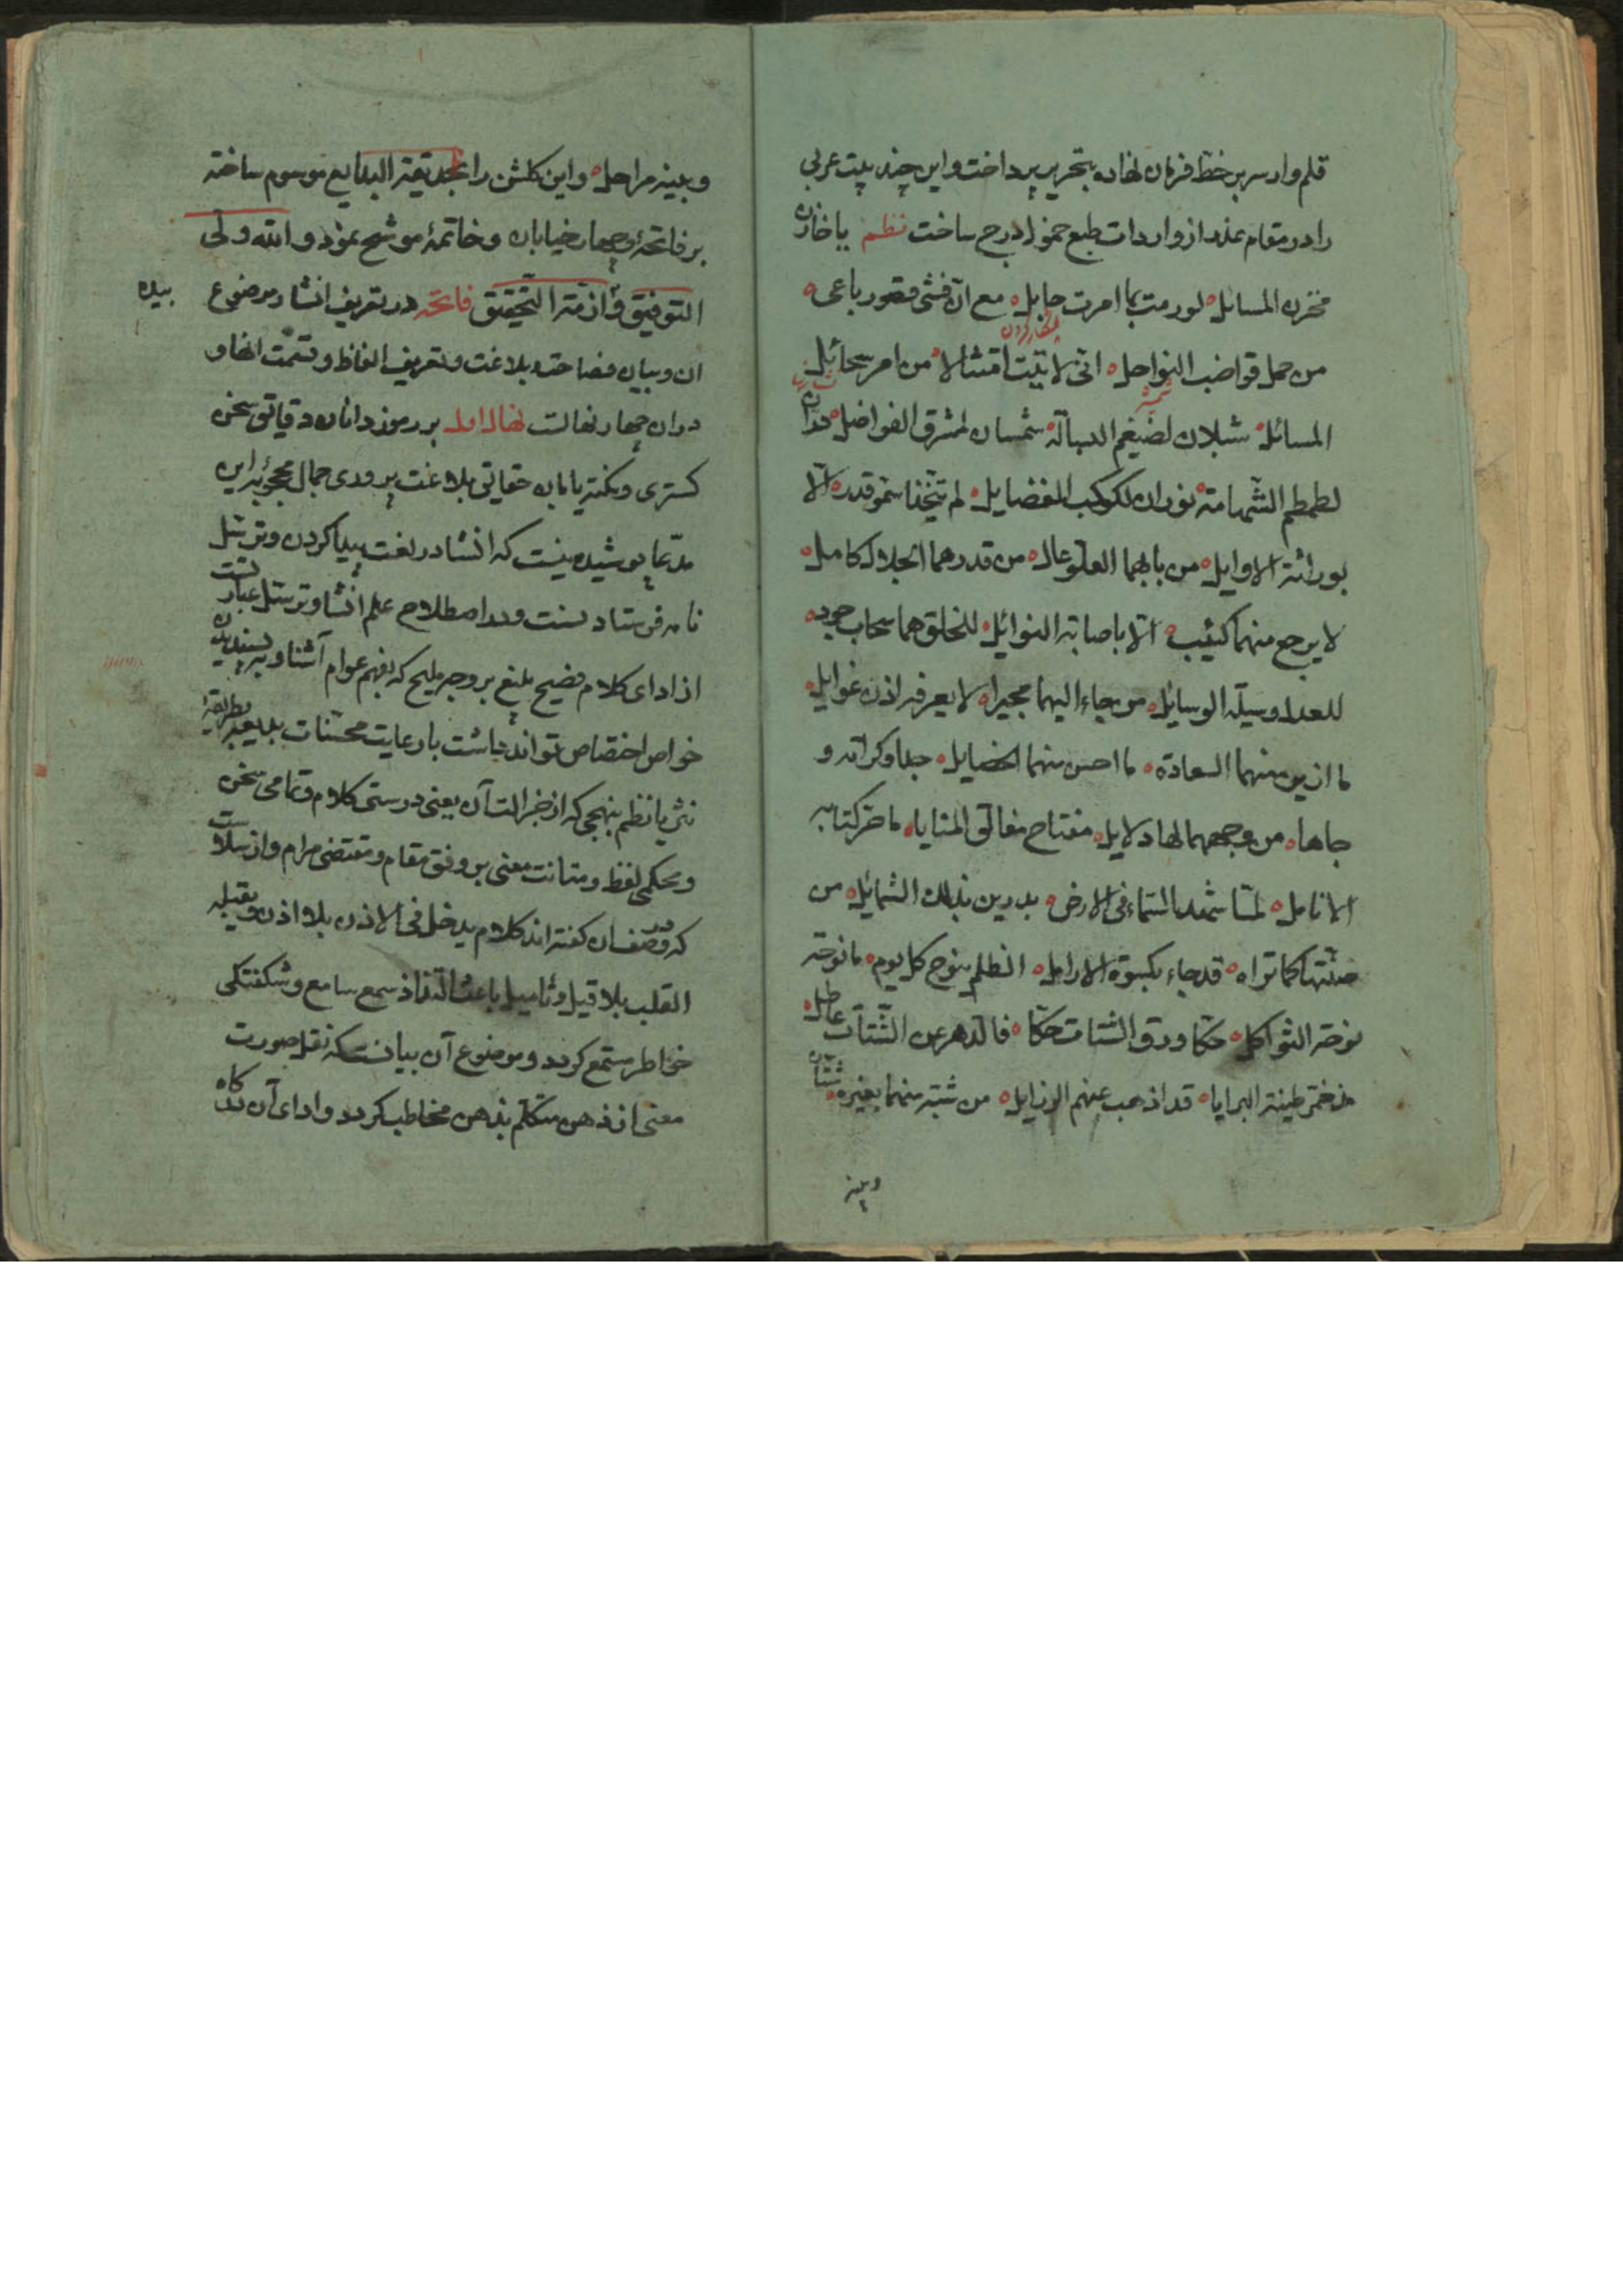 قلم وار سر بر خط فرمان نهاده بتحریر پرداخت و این چند بیت عربی
را در مقام عذر از واردات طبع خود درج ساخت نظم یا خازن
مخزن المسائل لو رمت بما امرت جابل مع انی فتی قصور باعی
من حمل قواضب النواحل انی لاتیت امتثالا من امر سحائل
المسائل شبلان لضیغم البسالة شمسان لمشرق الفواضل
لطمطم الشهامة نوران لکوکب الفضایل لم یتخذا سمو قدر الا
بوراثة الاوایل من بابهما العلو عال من قدرهما الجلال کامل
لا یرجع منهما کئیب الا باصابة النوائل للخلق هما سحاب جود
للعدل وسیلة الوسایل من جاء الیهما مجیرا لا یعرفه اذن غوایل
ما ازین منهما السعادة ما احسن منهما الخصایل جدا و کرامة و
جاها من وجههما لها دلایل مفتاح مغالق المنایا ما حرکتا به
الانامل لما شهد السماء فی الارض بدرین بذلک الشمائل من
حنتها کما تراه قد جاء بکسوة الارامل الظلم ینوح کل یوم ما نوحة
نوحة الثواکل حکا ورق الشتات حکا فالدهر عن الشتات عاطل
مذ خمر طینة البرایا قد اذهب عنهم الرذایل من شبه منهما بغیره شتان
وبینه
وبینه مراحل و این کلشن را بحدیقة البدایع موسوم ساخته
بر فاتحهٔ و چهار خیابان و خاتمهٔ موشح نمود و الله ولی
التوفیق و ازمة التحقیق فاتحه در تعریف انشا و موضوع
ان و بیان فصاحت و بلاغت و تعریف الفاظ و قسمت انها و
دران چهار نهالست نهال اول بر رموز دانان دقایق سخن
کستری و نکته یابان حقایق بلاغت پروری جمال محجوبهٔ این
مدعا پوشیده نیست که انشا در لغت پیدا کردن و ترسل
نامه فرستادنست و در اصطلاح علم انشا و ترسل عبارتست
از ادای کلام فصیح بلیغ بر وجه ملیح که بفهم عوام آشنا و به پسندیدن
خواص اختصاص تواند داشت با رعایت محسنات بدیعه بطریقهٔ
نثر یا نظم بنهجی که از جزالت آن یعنی درستی کلام و تمامی سخن
و محکمی لفظ و متانت معنی بر وفق مقام و مقتضی مرام و از سلاست
که در وصف ان کفته اند کلام یدخل فی الاذن بلا اذن و یقبله
القلب بلا قیل و تامیل باعث التذاذ سمع سامع و شکفتکی
خواطر مستمع کردد و موضوع آن بیانست که نقل صورت
معنی از ذهن متکلم بذهن مخاطب کردد و ادای آن کاه